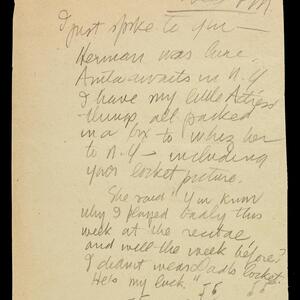 PM
I just spoke to you—
Herman was here.
Anita awaits in N.Y
I have my little Actress
things, all packed
in a box to whiz her
to N.Y— including
your locket picture.
She said "You know
why I played badly this
week at the recital
and well the week before?
I didn't wear Dad's locket.
He's my luck."